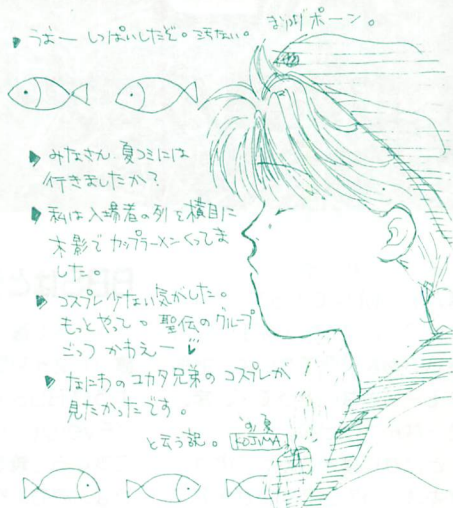 うおー しっぱいしたぞ。きちない。
まつげボーン。
みなさん.夏コミには
行きましたか?
私は入場者の列を横目に
木影でカップラーメンくってま
した。
コスプレ少ない気がした。
もっとやって。聖伝のグループ
ごっつ かわえー
なにわのユカタ兄弟のコスプレが
見たかったです。
と云う訳。
夏
KOJIMA